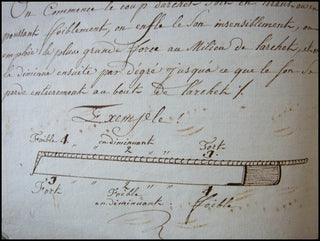 On Commence le coup d'archet soit en tirant ou en
poussant foiblement, on enfle le Son insensiblement, on
emploie la plus grande force au Milieu de l'archet, et on
la diminue ensuite par degré jusqua ce que le son se
perde entierement au bouts de l'archet.
Exemple!
Foible 4 " en diminuant " 3 Fort
3 " 2 " " 4
Fort Foible
en diminuant. Foible